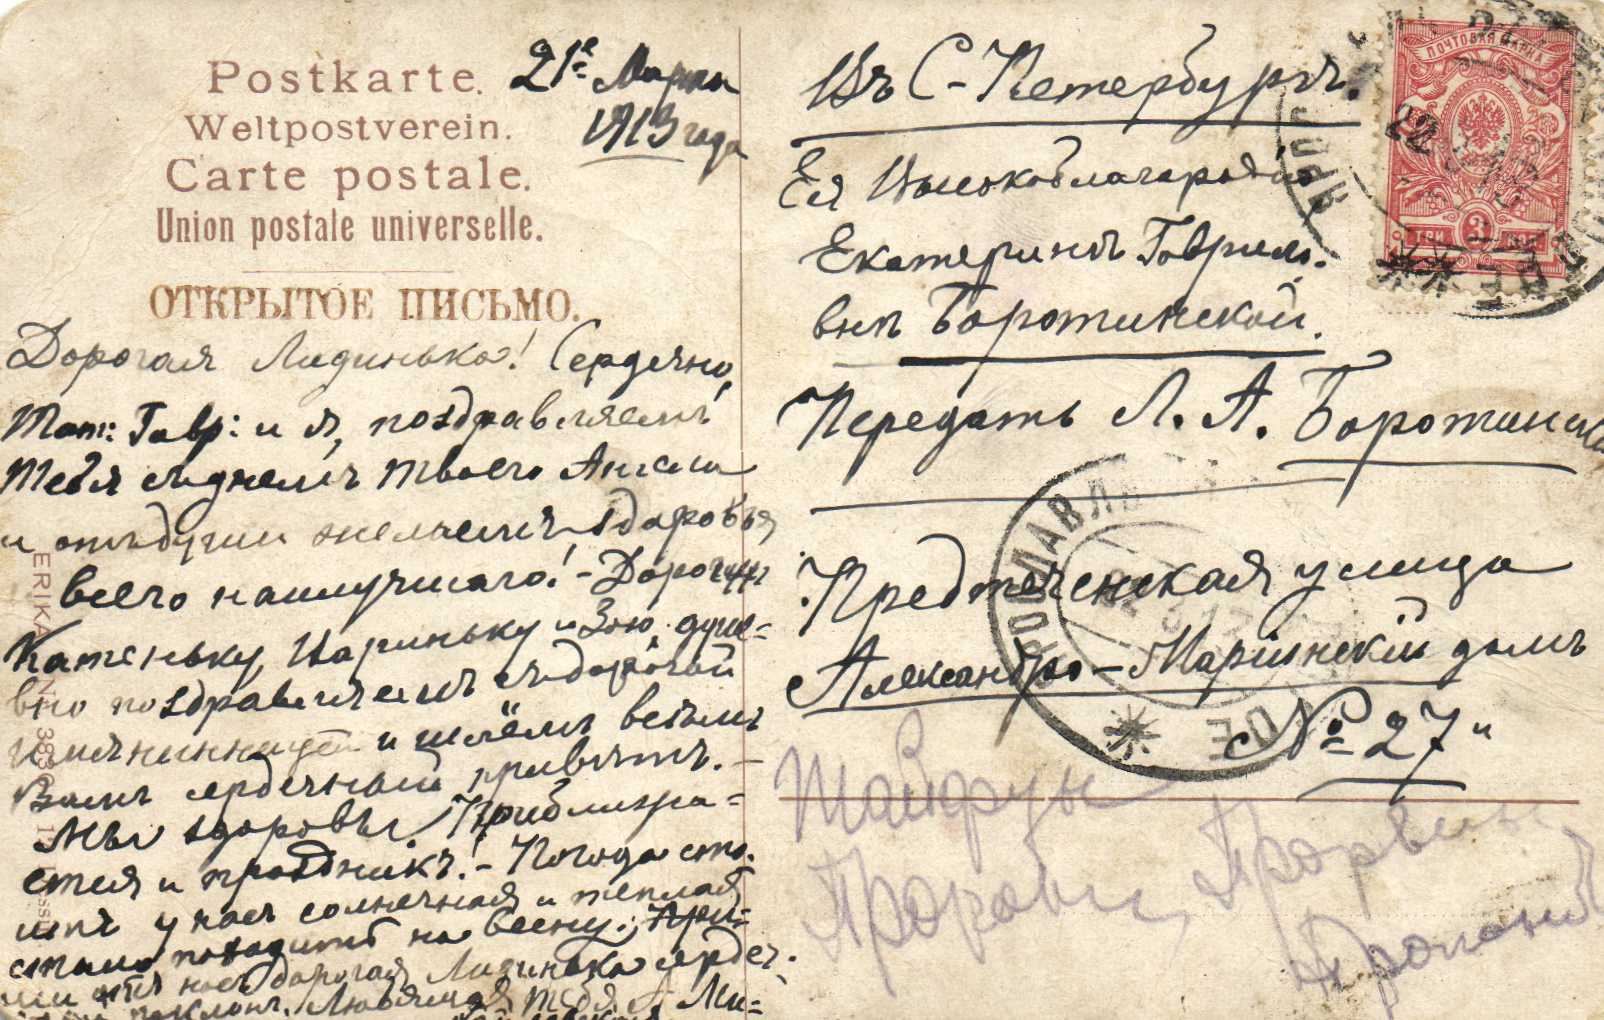 Postkarte.
Weltpostverein.
Carte postale.
Union postale universelle.
ОТКРЫТОЕ ПИСЬМО.
21го Марта
1913 года
Дорогая Лидинька! Сердечно,
Тат: Гавр: и я, поздравляемъ
тебя съ днемъ твоего Ангела
и отъ души желаемъ здоровья
всего наилучшаго! - Дорогихъ
Катеньку, Мариньку и Зою, душе-
вно поздравляемъ съ дорогой
имянинницей и шлёмъ всѣмъ
Вамъ сердечный привѣтъ. -
Мы здоровы. Приближа-
ется и праздникъ! - Погода сто-
итъ у насъ солнечная и теплая
стало походить на весну.
дорогая Лидинька сердеч-
поклонъ. Любящая тебя А. Ми-
Въ С-Петербургъ.
Ея Высокоблагородію
Екатеринѣ Гаврило-
внѣ Боротинской.
Передать Л. А. Боротинской
Предтеченская улица
Александро-Маріинскій домъ
№ 27"
ПОЧТОВАЯ МАРКА
ТРИ 3 КОП
ЯРОСЛАВЛЬ
22
ERIKA